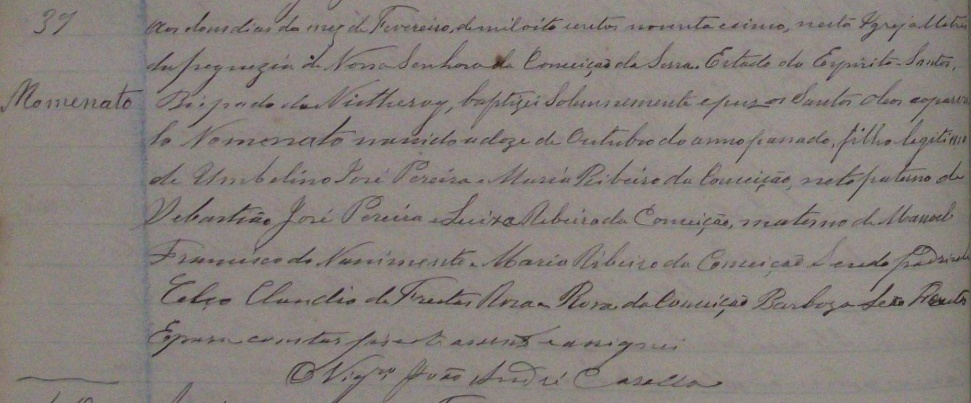 39
Aos dous dias do mez de Fevereiro, de mil oito centos noventa e cinco, nesta Igreja Matriz
da freguezia de Nossa Senhora da Conceição da Serra, Estado do Espirito-Santo,
Momenato
Bispado de Nictheroy, baptizei Solemnemente e puz os Santos oleos ao parvu
lo Nomenato nascido a doze de Outubro do anno passado, filho legitimo
de Umbelino José Pereira e Maria Ribeiro da Conceição, neto paterno de
Sebastião José Pereira e Luiza Ribeiro da Conceição, materno de Manoel
Francisco do Nascimento e Maria Ribeiro da Conceição Sendo padrinhos
Celso Claudio de Freitas Rosa e Rosa da Conceição Barboza
E para constar fiz este assento e assignei
O Vigro João André Casella